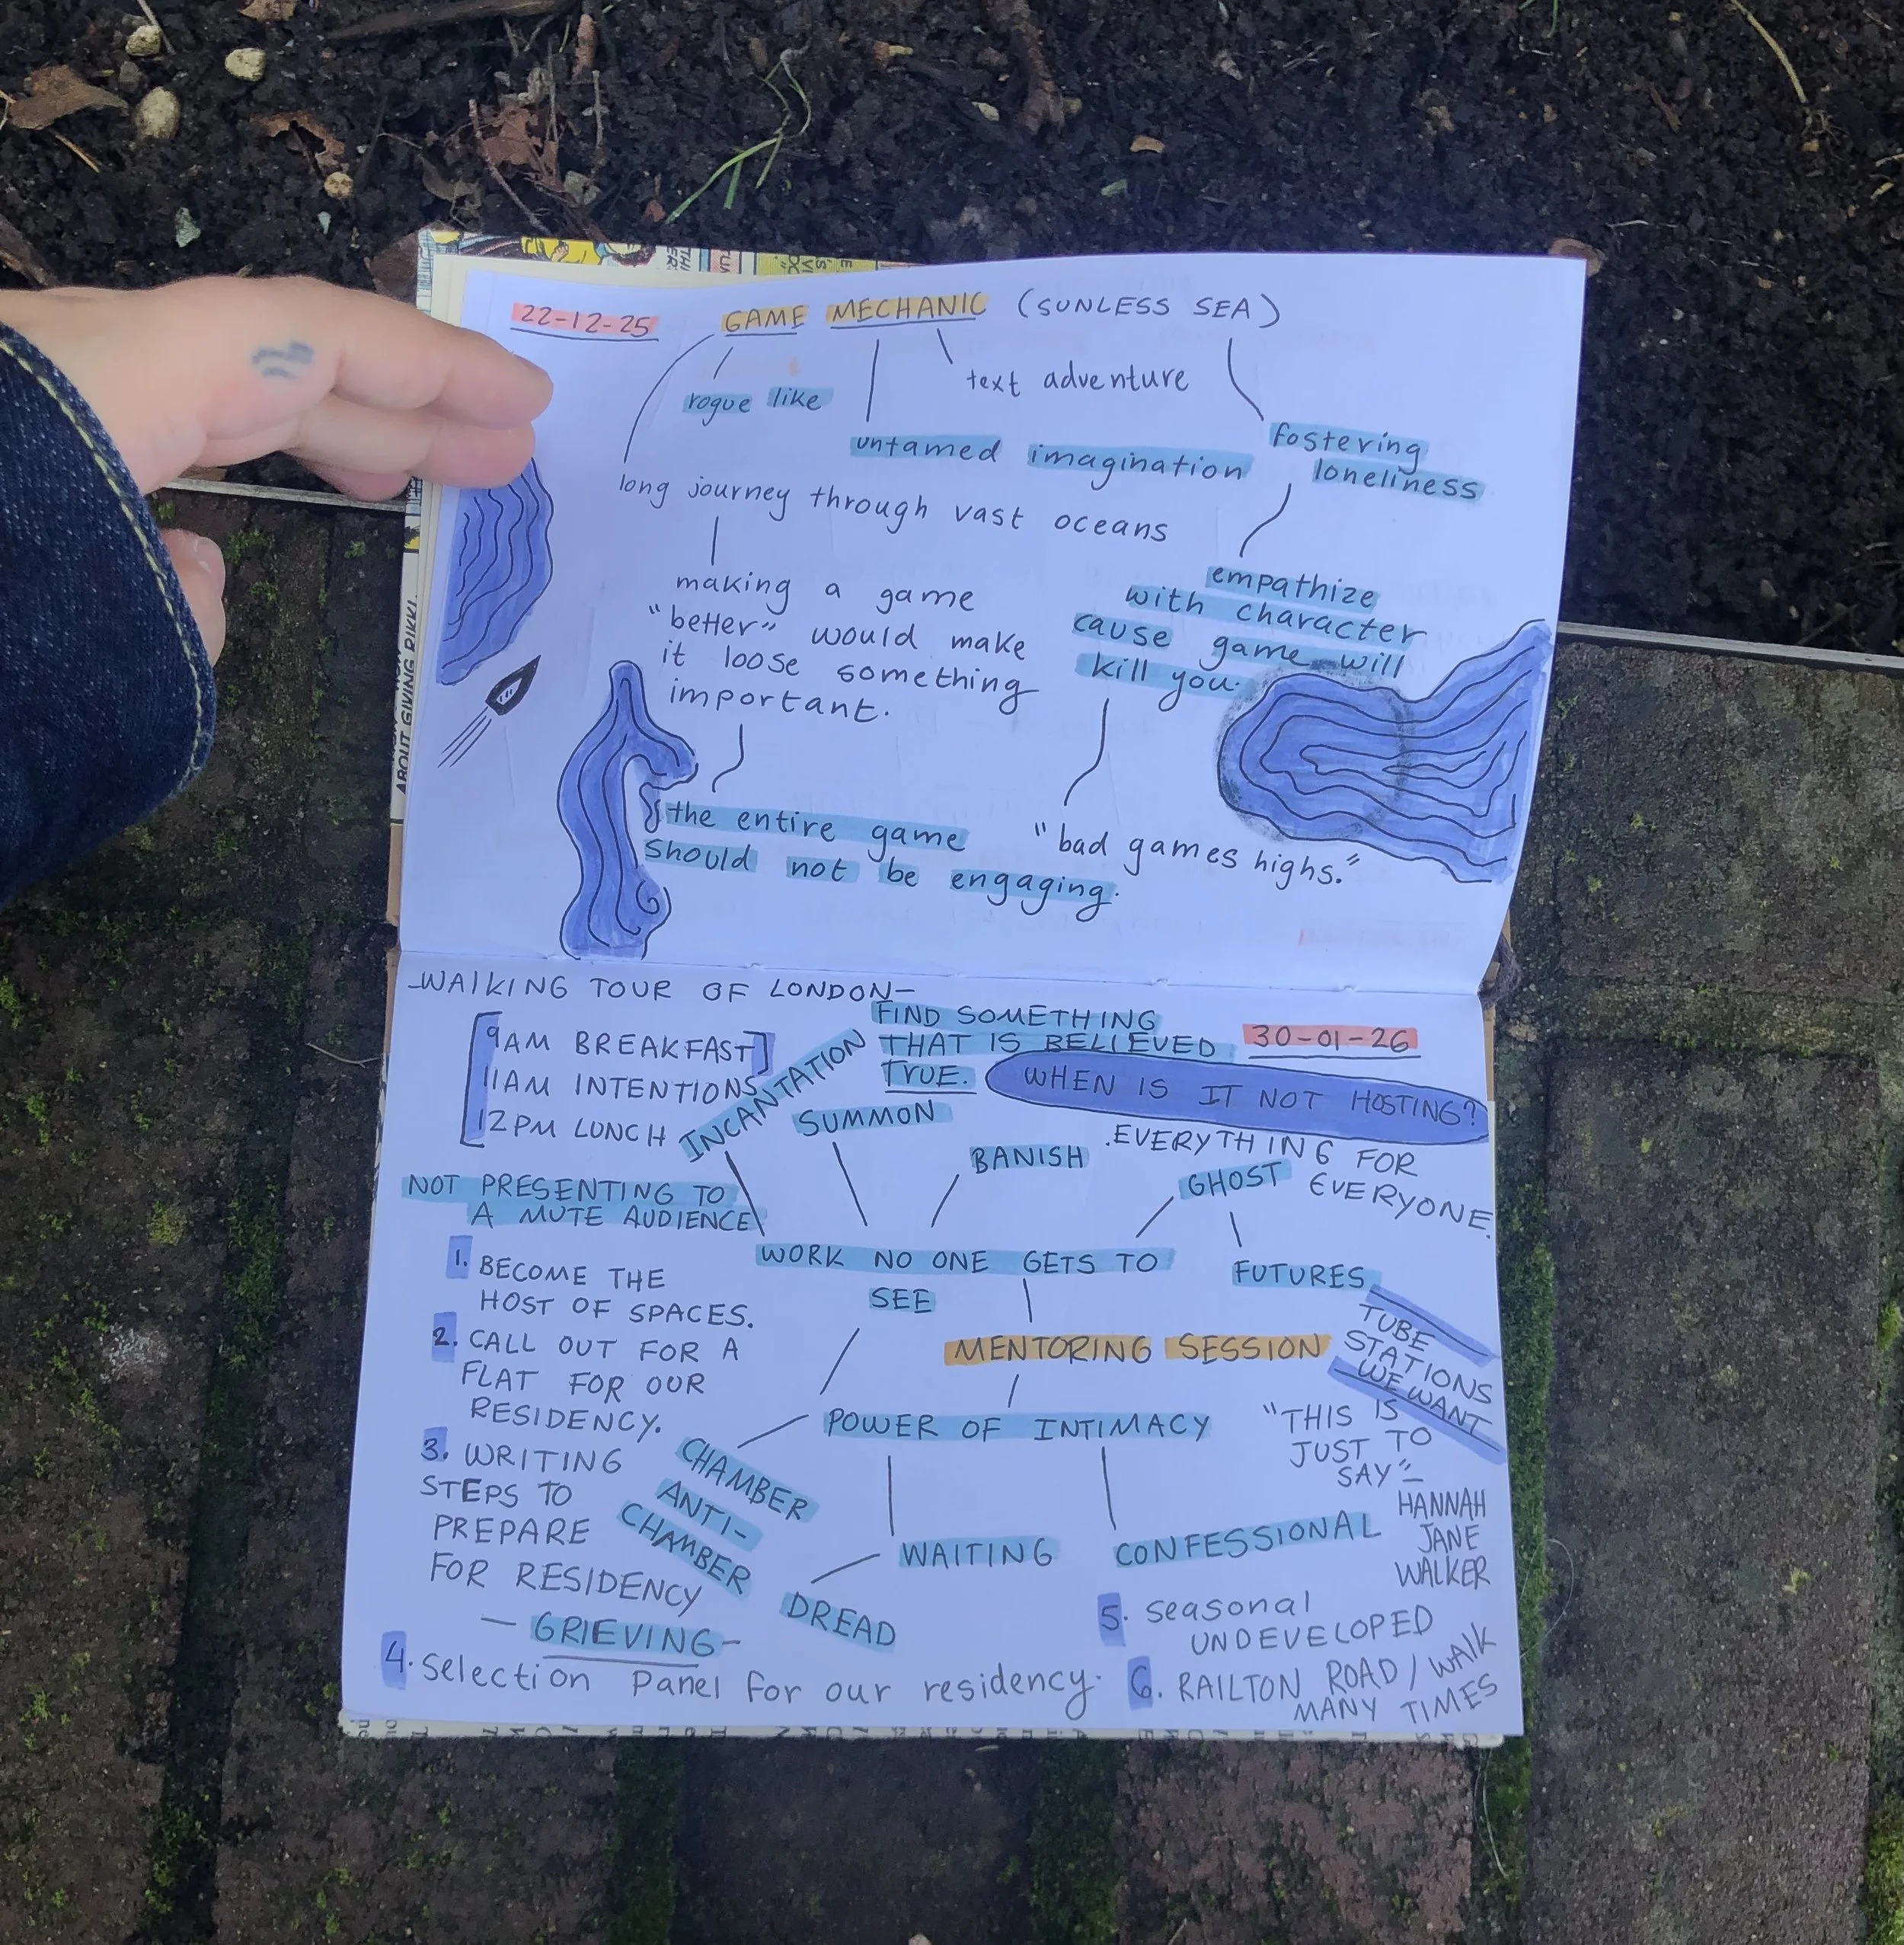 22-12-25
GAME MECHANIC (SUNLESS SEA)
rogue like
text adventure
untamed imagination
fostering
loneliness
long journey through vast oceans
making a game
"better" would make
it loose something
important.
empathize
with character
cause game will
kill you.
the entire game
should not be engaging.
"bad games highs."
-WALKING TOUR OF LONDON-
9AM BREAKFAST
11AM INTENTIONS
12PM LUNCH
FIND SOMETHING
THAT IS BELIEVED
TRUE.
30-01-26
WHEN IS IT NOT HOSTING?
.EVERYTHING FOR
EVERYONE.
INCANTATION
SUMMON
BANISH
GHOST
NOT PRESENTING TO
A MUTE AUDIENCE
WORK NO ONE GETS TO
SEE
FUTURES
TUBE
STATIONS
WE WANT
1. BECOME THE
HOST OF SPACES.
2. CALL OUT FOR A
FLAT FOR OUR
RESIDENCY.
3. WRITING
STEPS TO
PREPARE
FOR RESIDENCY
- GRIEVING-
MENTORING SESSION
POWER OF INTIMACY
CHAMBER
ANTI-
CHAMBER
WAITING
CONFESSIONAL
DREAD
"THIS IS
JUST TO
SAY"-
HANNAH
JANE
WALKER
4. Selection Panel for our residency.
5. Seasonal
UNDEVELOPED
6. RAILTON ROAD / WALK
MANY TIMES
ABOUT GIVING RIKKI